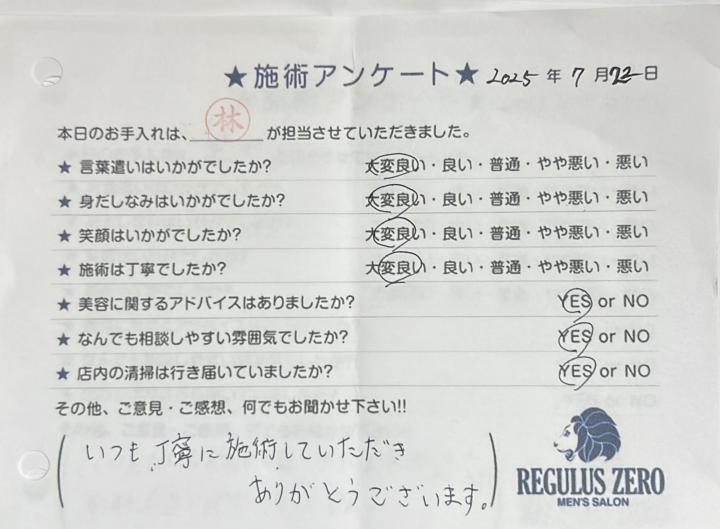 ★施術アンケート★ 2025年7月22日
本日のお手入れは、林が担当させていただきました。
★ 言葉遣いはいかがでしたか? 大変良い・良い・普通・やや悪い・悪い
★ 身だしなみはいかがでしたか? 大変良い・良い・普通・やや悪い・悪い
★ 笑顔はいかがでしたか? 大変良い・良い・普通・やや悪い・悪い
★ 施術は丁寧でしたか? 大変良い・良い・普通・やや悪い・悪い
★ 美容に関するアドバイスはありましたか? YES or NO
★ なんでも相談しやすい雰囲気でしたか? YES or NO
★ 店内の清掃は行き届いていましたか? YES or NO
その他、ご意見・ご感想、何でもお聞かせ下さい!!
いつも丁寧に施術していただき
ありがとうございます。
REGULUS ZERO
MEN'S SALON